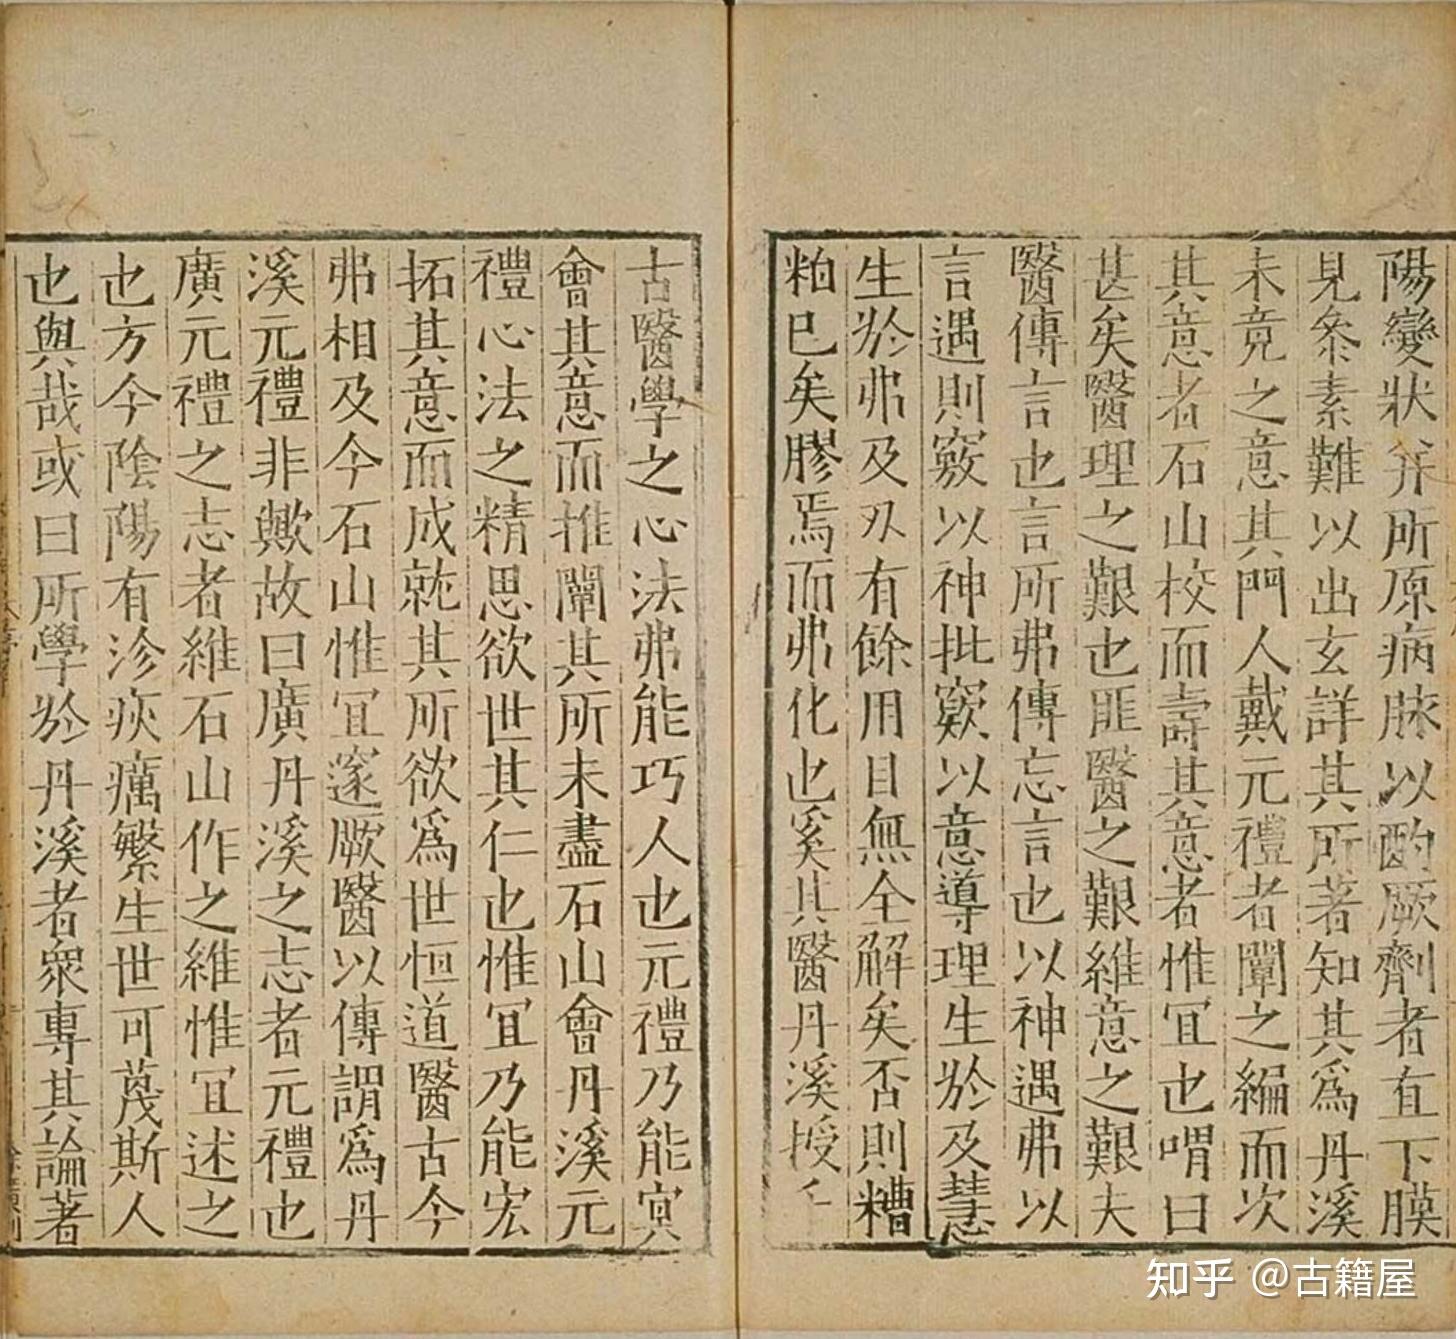 陽變狀并所原病脉以酌厥劑者直下膜
見叅素難以出玄詳其所著知其爲丹溪
未竟之意其門人戴元禮者闡之編而次
其意者石山校而壽其意者惟宜也喟曰
甚矣醫理之艱也匪醫之艱維意之艱夫
醫傳言也言所弗傳忘言也以神遇弗以
言遇則竅以神批窾以意導理生於及慧
生於弗及刃有餘用目無全解矣否則糟
粕巳矣膠焉而弗化也奚其醫丹溪授
古醫學之心法弗能巧人也元禮乃能㝠
會其意而推闡其所未盡石山會丹溪元
禮心法之精思欲世其仁也惟宜乃能宏
拓其意而成就其所欲爲世恒道醫古今
弗相及今石山惟宜邃厥醫以傳謂爲丹
溪元禮非歟故曰廣丹溪之志者元禮也
廣元禮之志者維石山作之維惟宜述之
也方今陰陽有沴疢癘繁生世可蔑斯人
也與哉或曰所學於丹溪者衆專其論著
知乎 @古籍屋